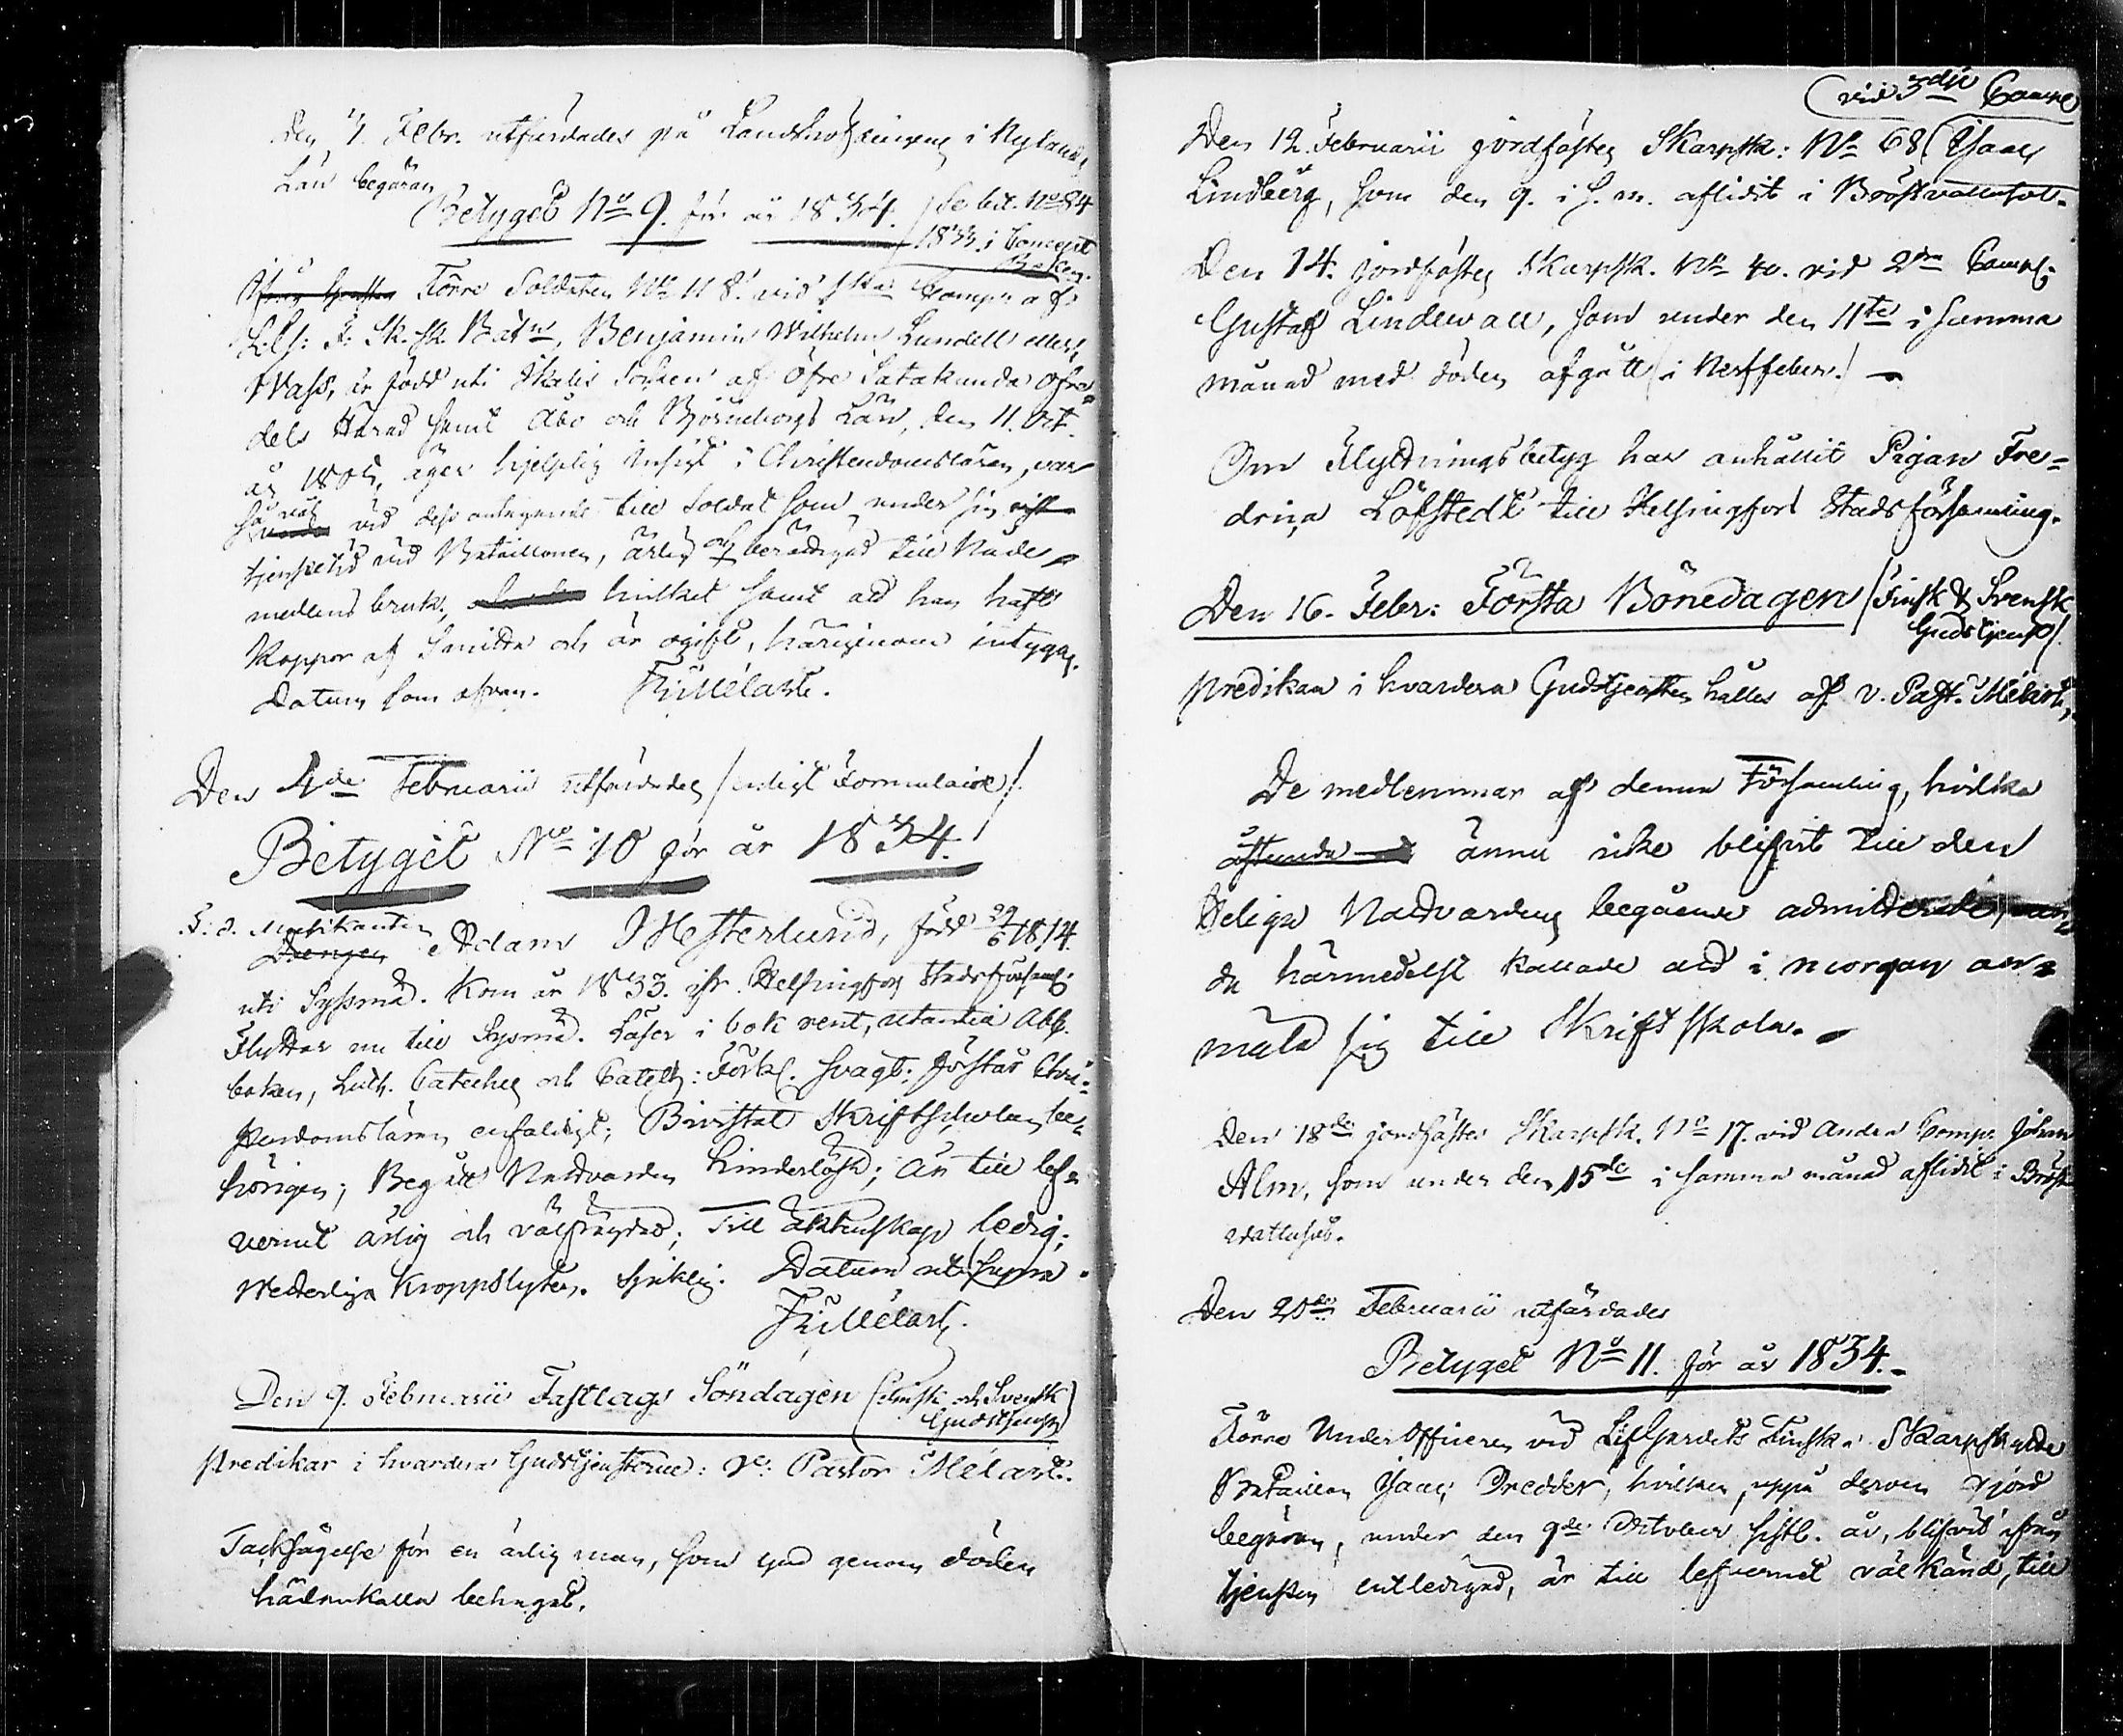 Den 4. Febr. utfärdades på Landshöfdingens i Nylands
Län begäran
Betyget No 9. för år 1834. (Se bet. No 84
1833. i Concept
Boken.
Förre Soldaten No 118. vid 1sta Comp. af
L. G: F. Sk. sk. Bat., Benjamin Wilhelm Lundell eller
Wass, är född uti Ikalis Socken af Öfre Satakunda Öfre
dels Härad samt Åbo och Björneborgs Län, den 11. Oct.
år 1805, äger hjelplig insigt i Christendomsläran, var
såväl vid dess antagande till Soldat som under sin
tjenstetid vid Bataillonen, ärlig och berättigad till Nåde
medlens bruk, hvilket samt att han haft
Koppor af Smitta och är ogift, härigenom intygas.
Datum som ofvan. FWMelart.
Den 4de Februarii utfärdades (enligt Formulaire)
Betyget No 10 för år 1834.
F: d. Musikanten
Drengen Adam Westerlund, född 29/6 1814.
uti Syssmä. Kom år 1833. ifr. Helsingfors Stadsförsaml:
Flyttar nu till Sysmä. Läser i bok rent, utantill Abc
boken, Luth. Cateches och Catech: Förkl. svagt; förstår Chri-
stendomsläran enfaldigt; Bivistat Skriftscholan be-
hörigen; Begått Nattvarden hinderlöst; Är till lef-
vernet ärlig och välfrägdad; Till äktenskap ledig;
Wederliga Kroppslyten. Datum ut supra.
FWMelart.
Den 9. Februarii Fastlags Söndagen (Finsk och Svensk
Gudstjenst)
Predikar i hvardera Gudstjensterne: V. Pastor Melart.
Tacksägelse för en ärlig man, som Gud genom döden
hädankalla behagat.
(vid 3dje Comp.)
Den 12. Februarii jordfästes Skarpsk: No 68 Isaac
Lindberg, som den 9. i s. m. aflidit i Bröstvattusot.
Den 14. jordfästes Skarpsk. No 40. vid 2dra Comp:
Gustaf Lindewall, som under den 11te i samma
månad med döden afgått (i Nerffeber.)
Om Flyttningsbetyg har anhållit Pigan Fre-
drica Löfstedt till Helsingfors Stadsförsamling.
Den 16. Febr: Första Bönedagen (Finsk & Svensk
Gudstjenst).
Predikan i hvardera Gudstjensten hålles af v. Past. Melart.
De medlemmar af denna Församling, hvilka
åstunda ännu icke blifvit till den
Heliga Nattvardens begående admitterade,
de härmedelst kallade att i morgon an-
mäla sig till Skriftskola.
Den 18de jordfästes Skarpsk. No 17. vid Andra Comp. Johan
Alm, som under den 15de i samma månad aflidit i Bröst
vattusot.
Den 20de Februarii utfärdades
Betyget No 11. för år 1834.
Förre Under Officeren vid LifGardets Finska Skarpskytte
Bataillon Isaac Dredder, hvilken, uppå derom gjord
begäran, under den 9de October sistl. år, blifvit ifrån
tjensten entledigad, är till lefvernet välkänd, till